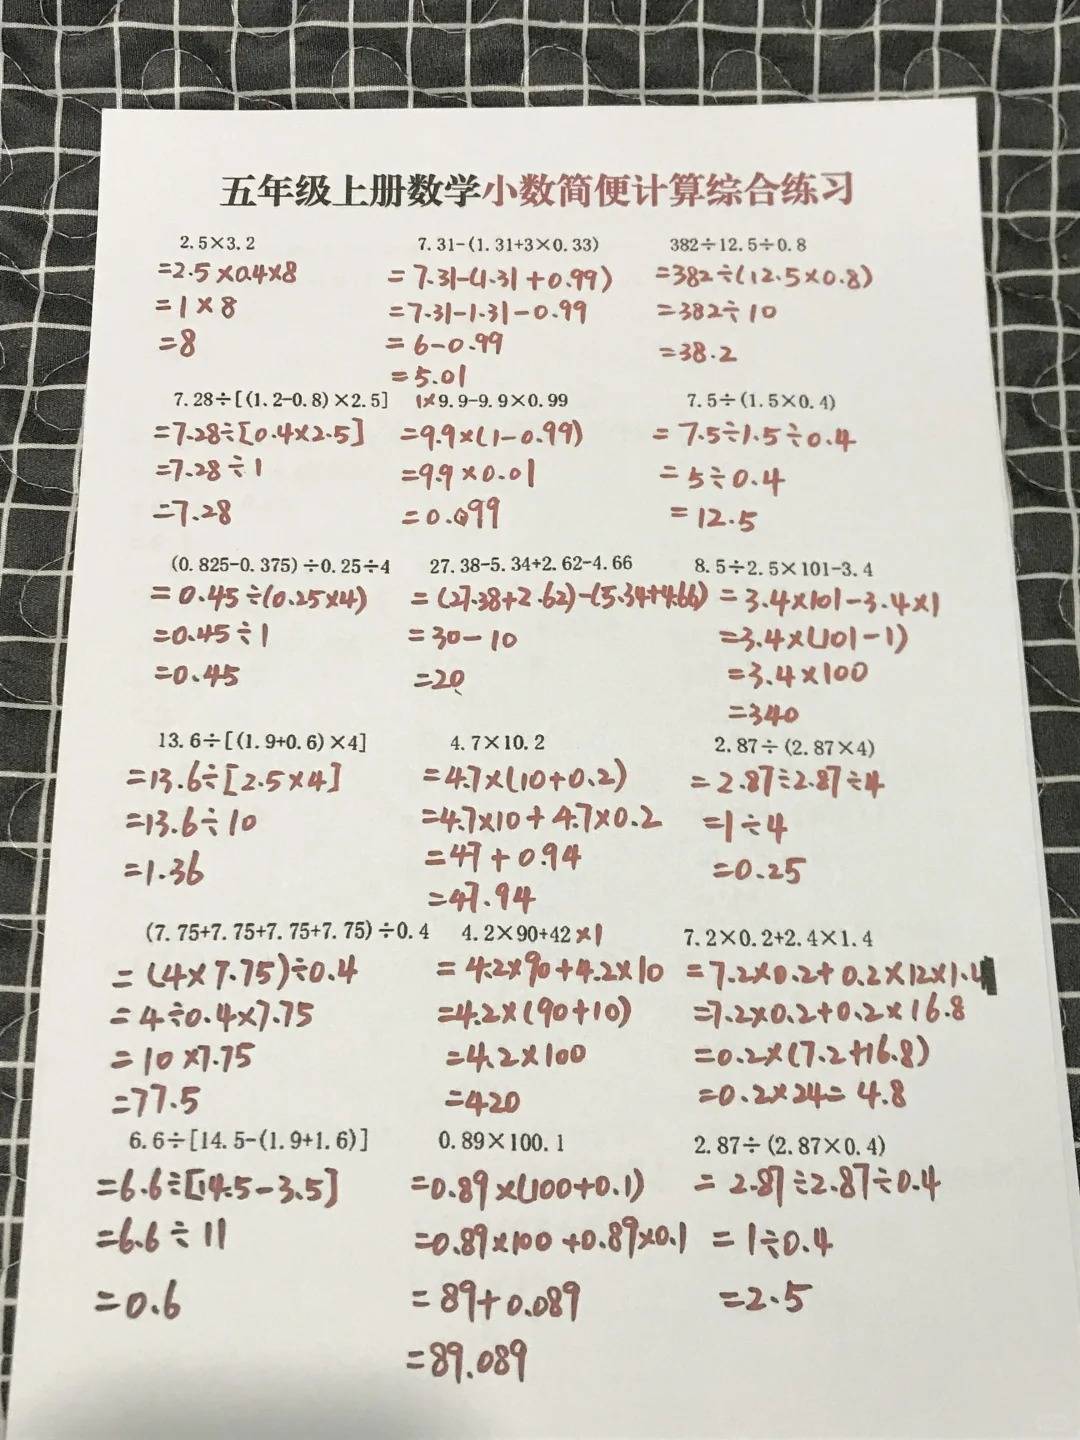 五年级上册数学小数简便计算综合练习
2.5×3.2
=2.5×0.4×8
=1×8
=8
7.31-(1.31+3×0.33)
=7.31-(1.31+0.99)
=7.31-1.31-0.99
=6-0.99
=5.01
382÷12.5÷0.8
=382÷(12.5×0.8)
=382÷10
=38.2
7.28÷[(1.2-0.8)×2.5]
=7.28÷[0.4×2.5]
=7.28÷1
=7.28
1×9.9-9.9×0.99
=9.9×(1-0.99)
=9.9×0.01
=0.099
7.5÷(1.5×0.4)
=7.5÷1.5÷0.4
=5÷0.4
=12.5
(0.825-0.375)÷0.25÷4
=0.45÷(0.25×4)
=0.45÷1
=0.45
27.38-5.34+2.62-4.66
=(27.38+2.62)-(5.34+4.66)
=30-10
=20
8.5÷2.5×101-3.4
=3.4×101-3.4×1
=3.4×(101-1)
=3.4×100
=340
13.6÷[(1.9+0.6)×4]
=13.6÷[2.5×4]
=13.6÷10
=1.36
4.7×10.2
=4.7×(10+0.2)
=4.7×10+4.7×0.2
=47+0.94
=47.94
2.87÷(2.87×4)
=2.87÷2.87÷4
=1÷4
=0.25
(7.75+7.75+7.75+7.75)÷0.4
=(4×7.75)÷0.4
=4÷0.4×7.75
=10×7.75
=77.5
4.2×90+42×1
=4.2×90+4.2×10
=4.2×(90+10)
=4.2×100
=420
7.2×0.2+2.4×1.4
=7.2×0.2+0.2×12×1.4
=7.2×0.2+0.2×16.8
=0.2×(7.2+16.8)
=0.2×24=4.8
6.6÷[14.5-(1.9+1.6)]
=6.6÷[14.5-3.5]
=6.6÷11
=0.6
0.89×100.1
=0.89×(100+0.1)
=0.89×100+0.89×0.1
=89+0.089
=89.089
2.87÷(2.87×0.4)
=2.87÷2.87÷0.4
=1÷0.4
=2.5